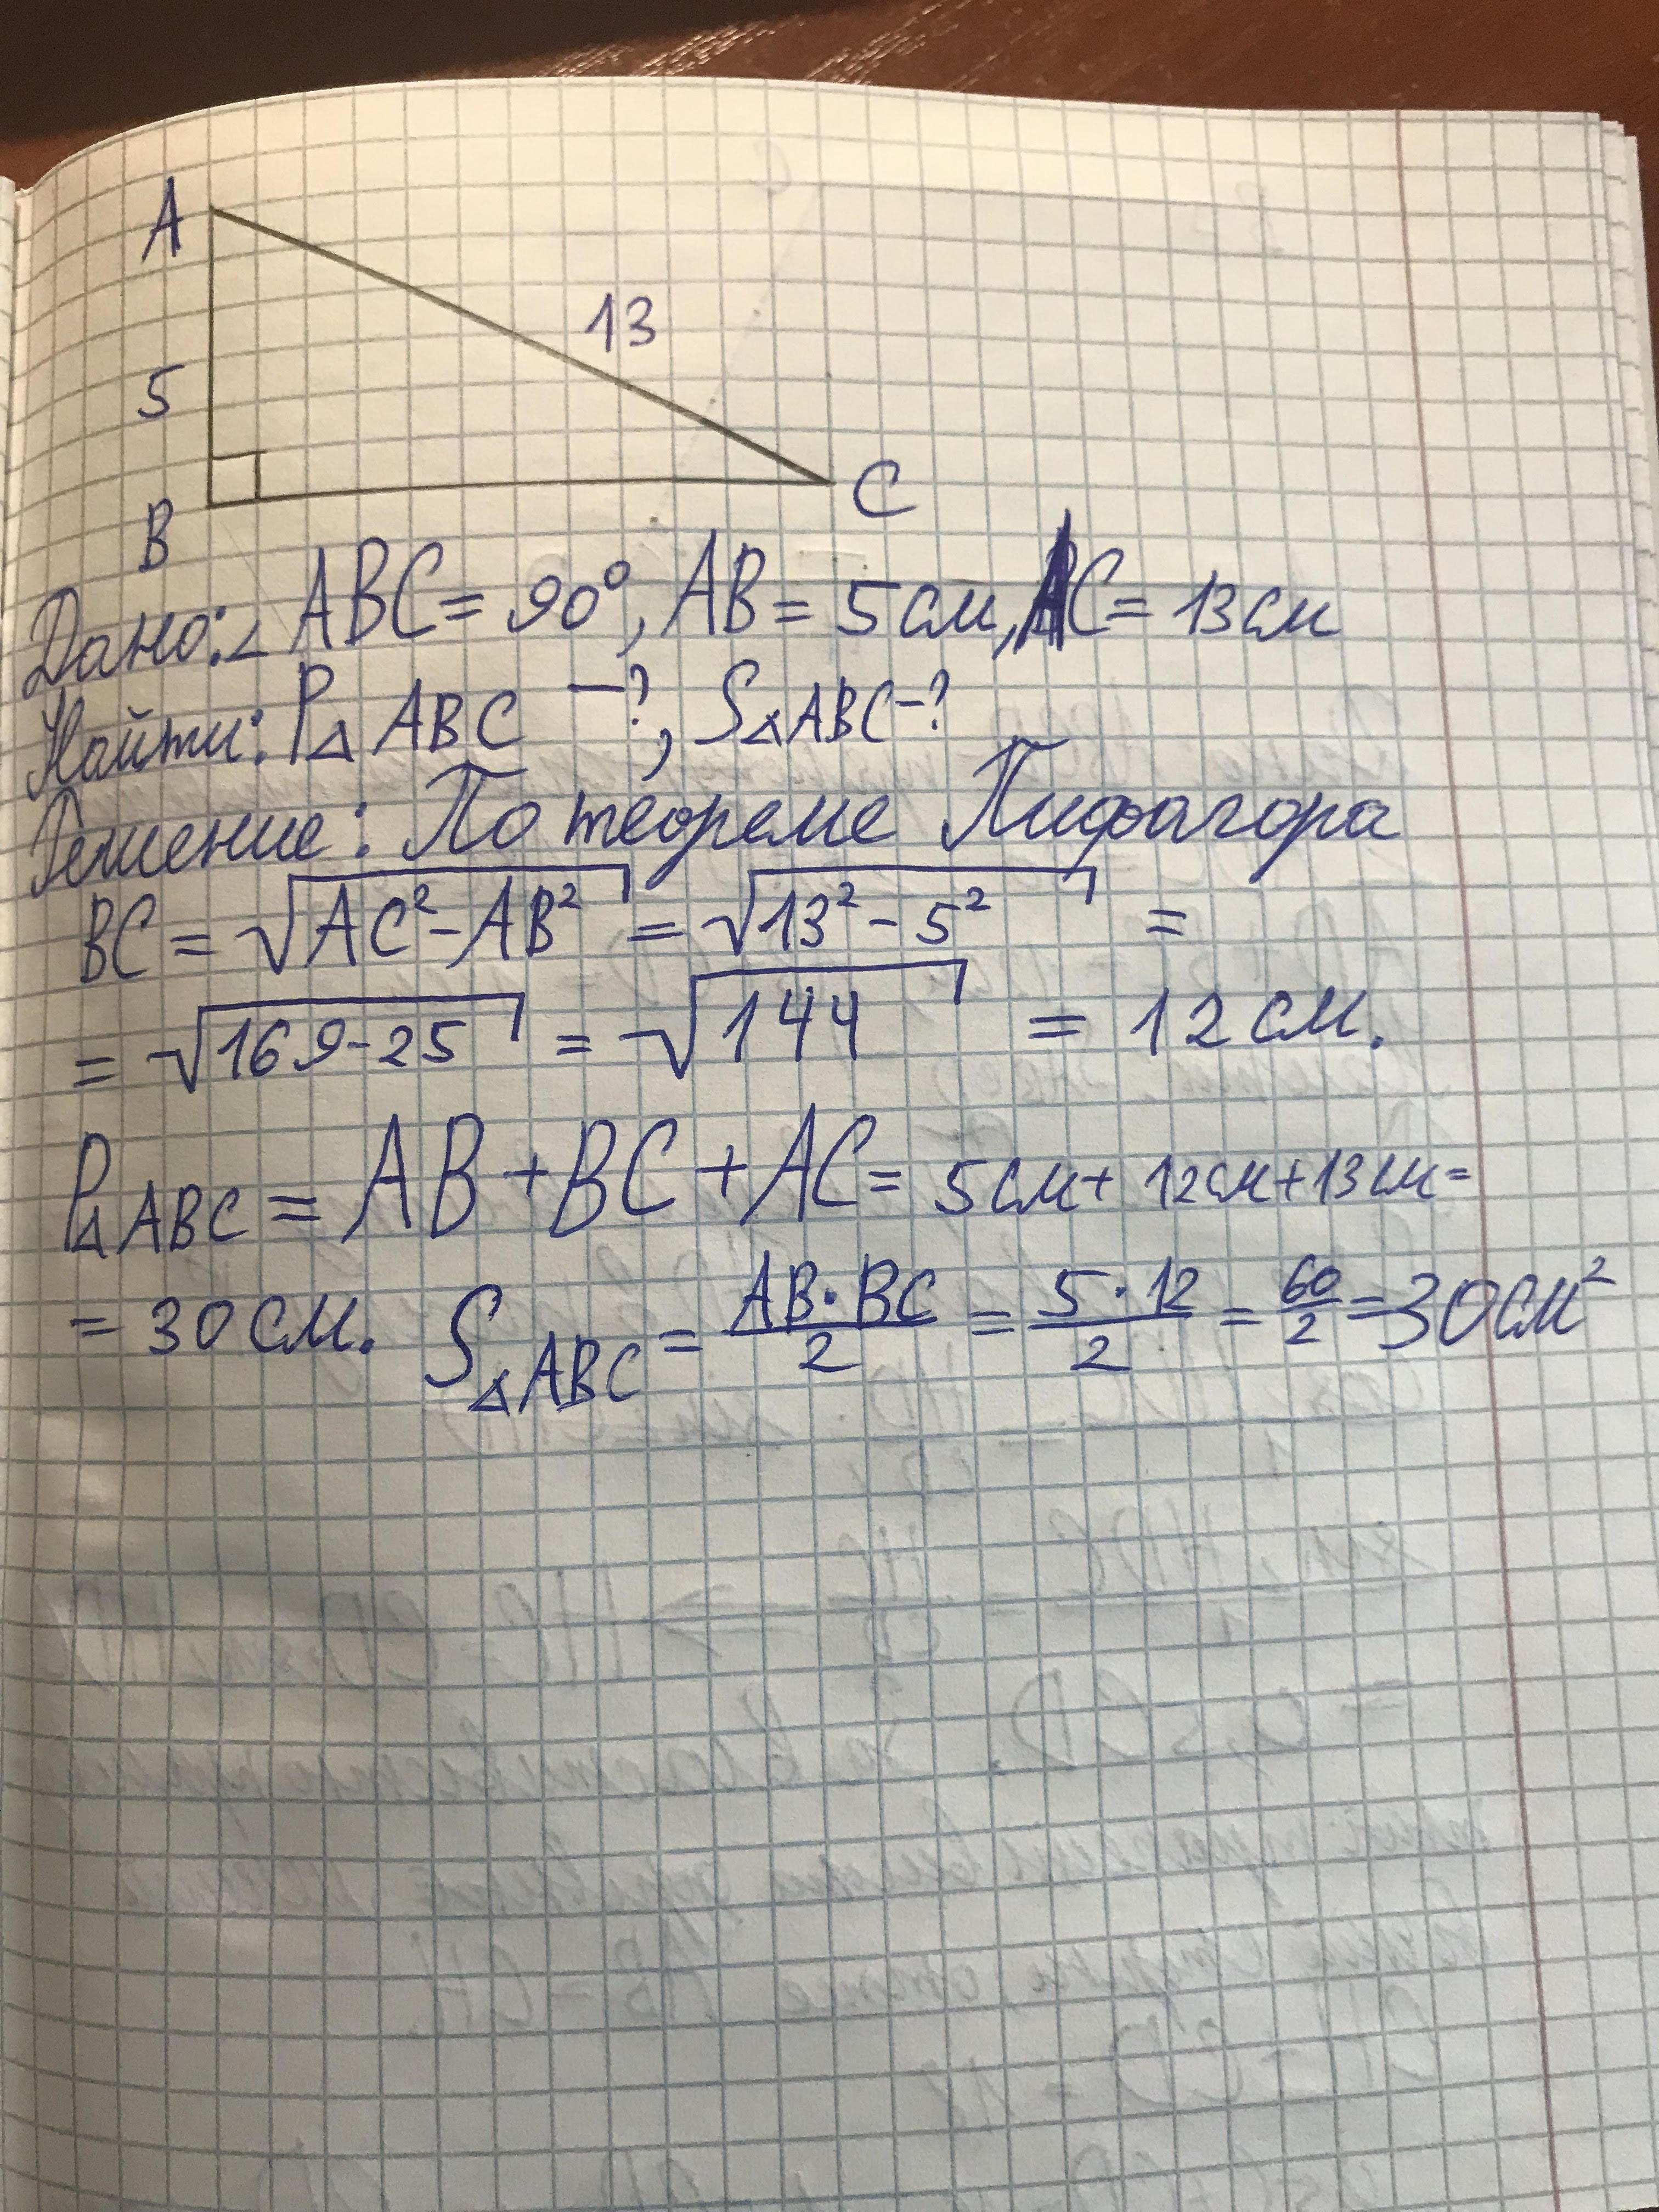 A
13
5
B
C
Дано: ∠ ABC = 90°, AB = 5 см, AC = 13 см
Найти: P△ ABC – ?, S△ABC – ?
Решение: По теореме Пифагора
BC = √AC² – AB² = √13² – 5² =
= √169 – 25 = √144 = 12 см.
P△ABC = AB + BC + AC = 5 см + 12 см + 13 см =
= 30 см. S△ABC = AB · BC / 2 = 5 · 12 / 2 = 60 / 2 = 30 см²